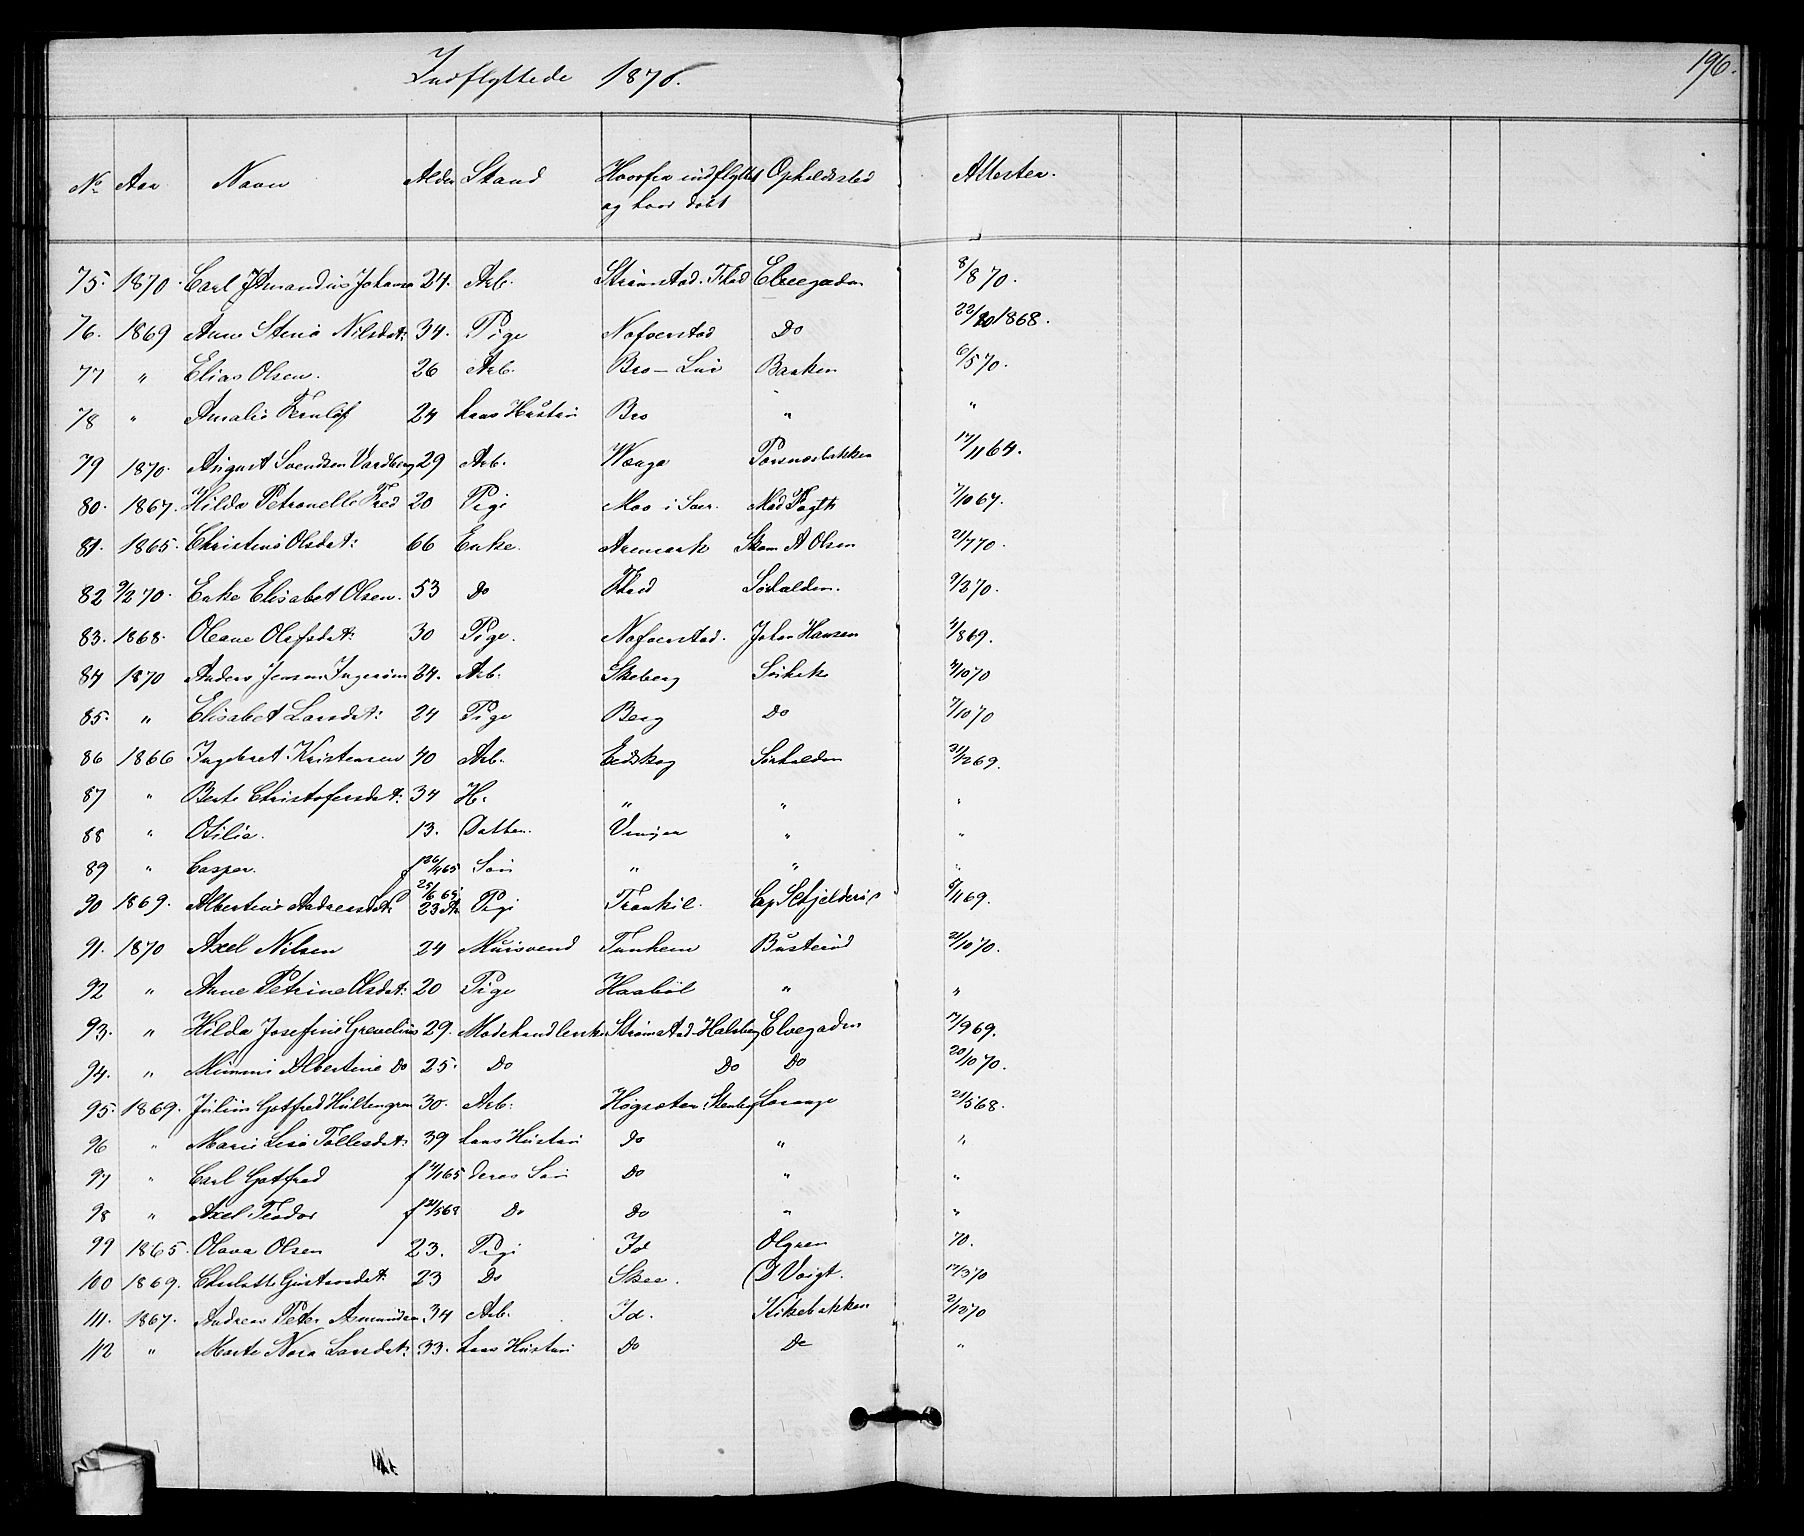 Indflyttede 1870.
196.
No Aar Navn Alder Stand Hvorfra indflyttet Opholdssted Attester.
og hvor døbt
75. 1870. Carl Amandus Johans 24. Arb. Strømstad. Elvegaden 8/8 70.
76. 1869 Anne Stine Nilsdat: 34. Pige Nafverstad Do 1868.
77 " Elias Olsen. 26 Arb. Bro - Bakken 6/5 70.
78 " Amalie 24 hans Hustru Bro " "
79 1870. August Svendsen 29 Arb. Wange 11 64.
80. 1867. Hilda Petronelle 20 Pige Mos i 7/10 67.
81. 1865. Christine Olsdat: 66 Enke. Aremark A Olsen 21/7 70.
82 9/2 70. Enke Elisabet Olsen. 53 Do Sørhalden. 9/3 70.
83. 1868. Oleane Olafsdat: 30 Pige. Nafverstad. Johan Hansen 8 69.
84 1870 Anders Jensen 24. Arb. Skeberg 10 70
85. " Elisabet Larsdat: 24 Pige Berg Do 7/10 70
86 1866 Ingebret Kristensen 40 Arb. Eidskog Sørhalden 31/12 69.
87 " Berte Christofersdat: 34 H. " " "
88 " Otilia. 13. Datter. Vinger " "
89 " Casper. f 65 Søn " " "
25/6 69
90 1869. Albertine Andreasdat: 23 Aar Pige Trankil. 11 69.
91. 1870 Axel Nilsen 24 Mursvend Tunhem Busterød 21/10 70.
92 " Anne Petrine Olsdat: 20 Pige Haabøl " "
93. " Hilda Josefine Grevelius 29. Modehandlerske Strømstad Elvegaden 17/9 69.
94. " Mimmi Albertine Do 25. Do Do Do 20/10 70.
95. 1869. Julius Gotfred Hultengren 30. Arb. Sorange 21/5 68.
96 " Marie Lisa Tollesdat: 39 hans Hustru Do " "
97 " Carl Gotfred f 65 deres Søn Do " "
98 " Axel Teodor f 68 Do Do " "
99 1865. Olava Olsen 23. Pige Id Olgren 70.
100 1869. Charlotte Gustavsdat. 23 Do Skee. Voigt. 17/3 70
111. 1867. Andreas Peter Asmundsen 34 Arb. Id. Kirkebakken 70
112 " Marte Nora Larsdat: 33. hans Hustru Do Do "